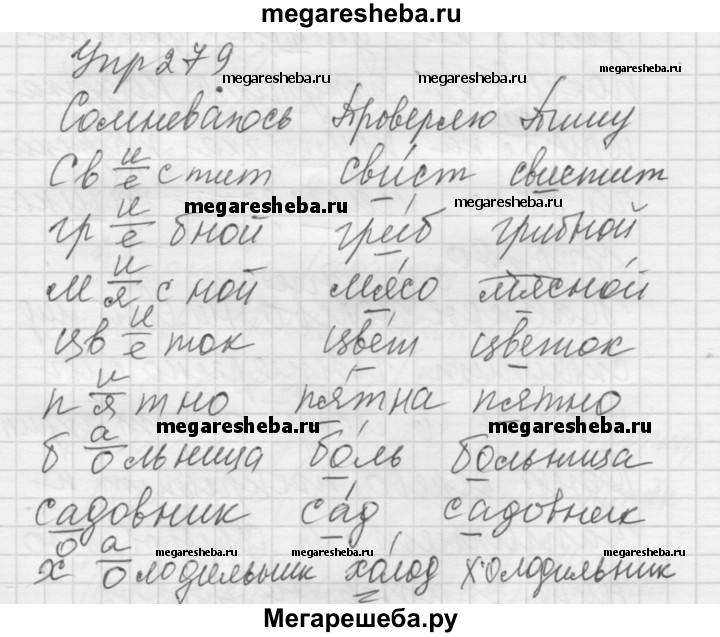 megaresheba.ru
Упр 279 megaresheba.ru megaresheba.ru megaresheba.ru
Сомневаюсь Проверяю Пишу
св и/е стит свист свистит
megaresheba.ru megaresheba.ru
гр и/е бной гриб грибной
м и/я сной мясо мясной
цв и/е ток цвет цветок
п и/я тно пятна пятно
megaresheba.ru megaresheba.ru
б а/о льница боль больница
садовник сад садовник
о
х а/о лодильник холод холодильник
megaresheba.ru megaresheba.ru megaresheba.ru megaresheba.ru
Мегарешеба.ру